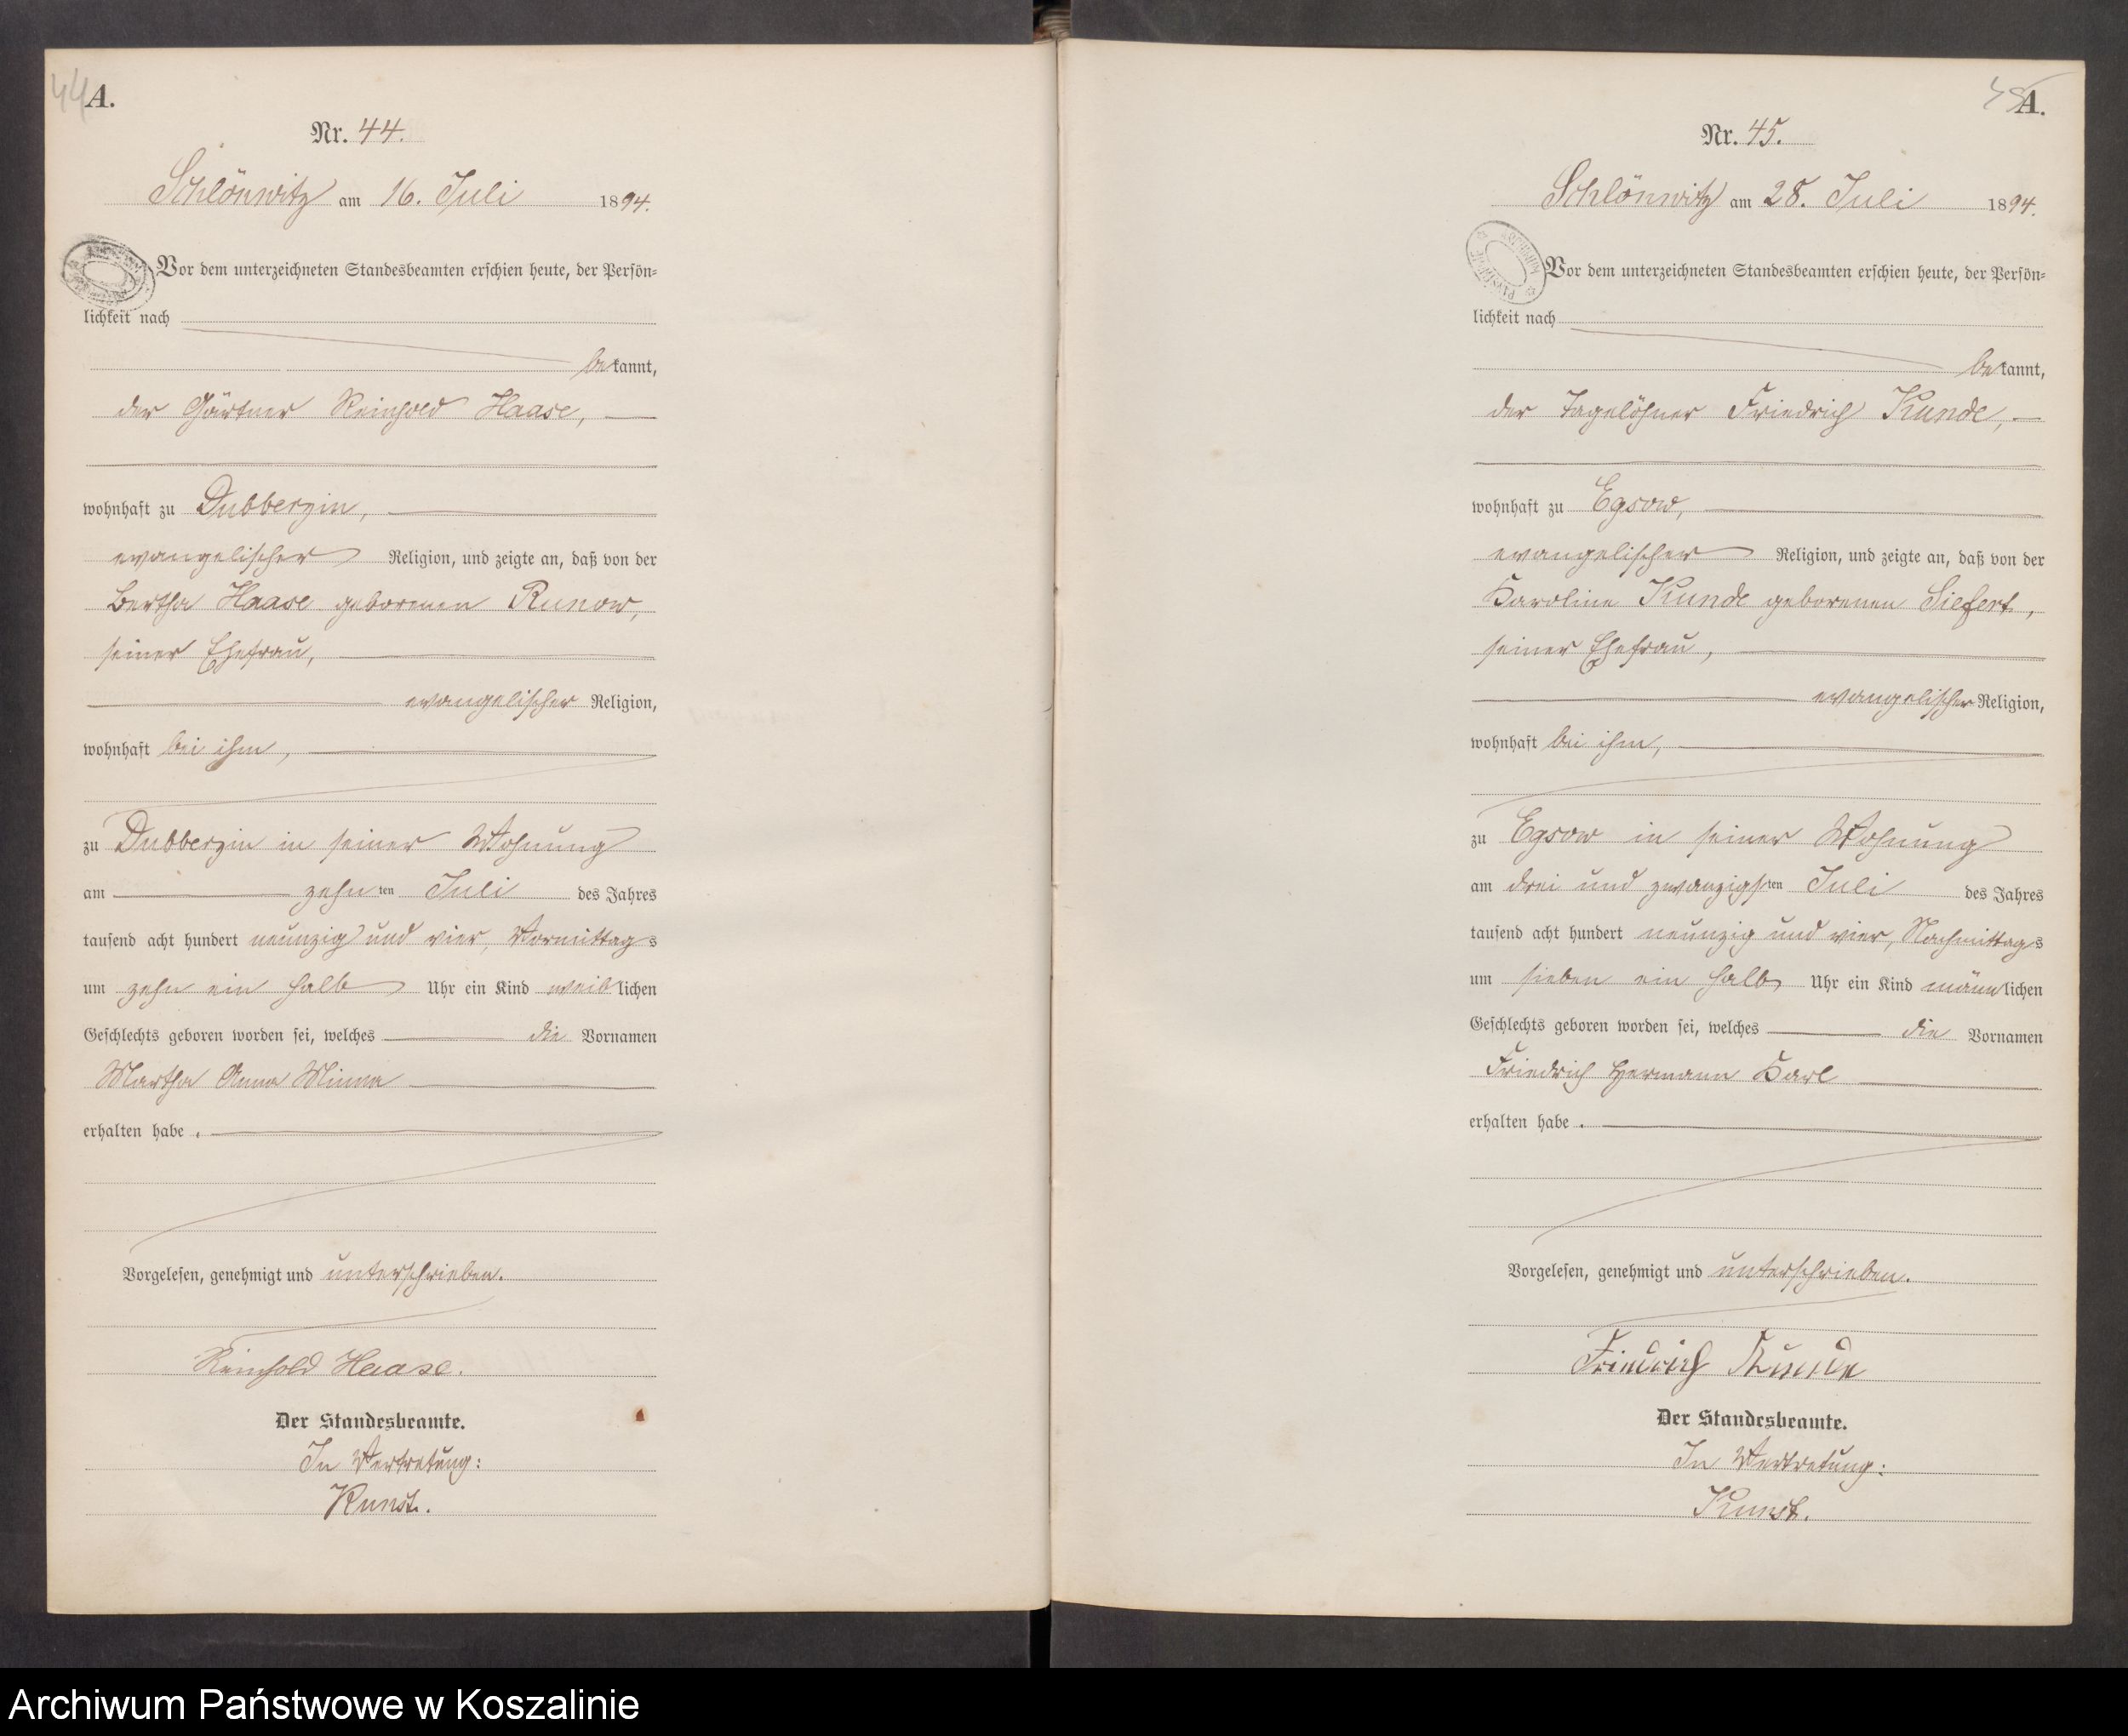 44
A.
Nr. 44.
Schlönwitz am 16. Juli 1894.
Vor dem unterzeichneten Standesbeamten erschien heute, der Persön=
lichkeit nach
bekannt,
der Gärtner Reinhold Haase,
wohnhaft zu Dubberzin,
evangelischer Religion, und zeigte an, daß von der
Bertha Haase geborenen Runow,
seiner Ehefrau,
evangelischer Religion,
wohnhaft bei ihm,
zu Dubberzin in seiner Wohnung
am zehnten Juli des Jahres
tausend acht hundert neunzig und vier, Vormittags
um zehn ein halb Uhr ein Kind weiblichen
Geschlechts geboren worden sei, welches die Vornamen
Martha Anna Minna
erhalten habe.
Vorgelesen, genehmigt und unterschrieben.
Reinhold Haase.
Der Standesbeamte.
In Vertretung:
Kunst.
45
A.
Nr. 45.
Schlönwitz am 28. Juli 1894.
Vor dem unterzeichneten Standesbeamten erschien heute, der Persön=
lichkeit nach
bekannt,
der Tagelöhner Friedrich Kunde,
wohnhaft zu Egsow,
evangelischer Religion, und zeigte an, daß von der
Karoline Kunde geborenen Siefert,
seiner Ehefrau,
evangelischer Religion,
wohnhaft bei ihm,
zu Egsow in seiner Wohnung
am drei und zwanzigsten Juli des Jahres
tausend acht hundert neunzig und vier, Nachmittags
um sieben ein halb Uhr ein Kind männlichen
Geschlechts geboren worden sei, welches die Vornamen
Friedrich Hermann Karl
erhalten habe.
Vorgelesen, genehmigt und unterschrieben.
Friedrich Kunde
Der Standesbeamte.
In Vertretung:
Kunst.
Archiwum Państwowe w Koszalinie